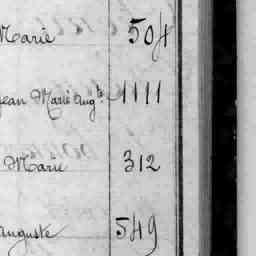 Marie 504
Jean Marie Augte 1111
Marie 312
Auguste 549